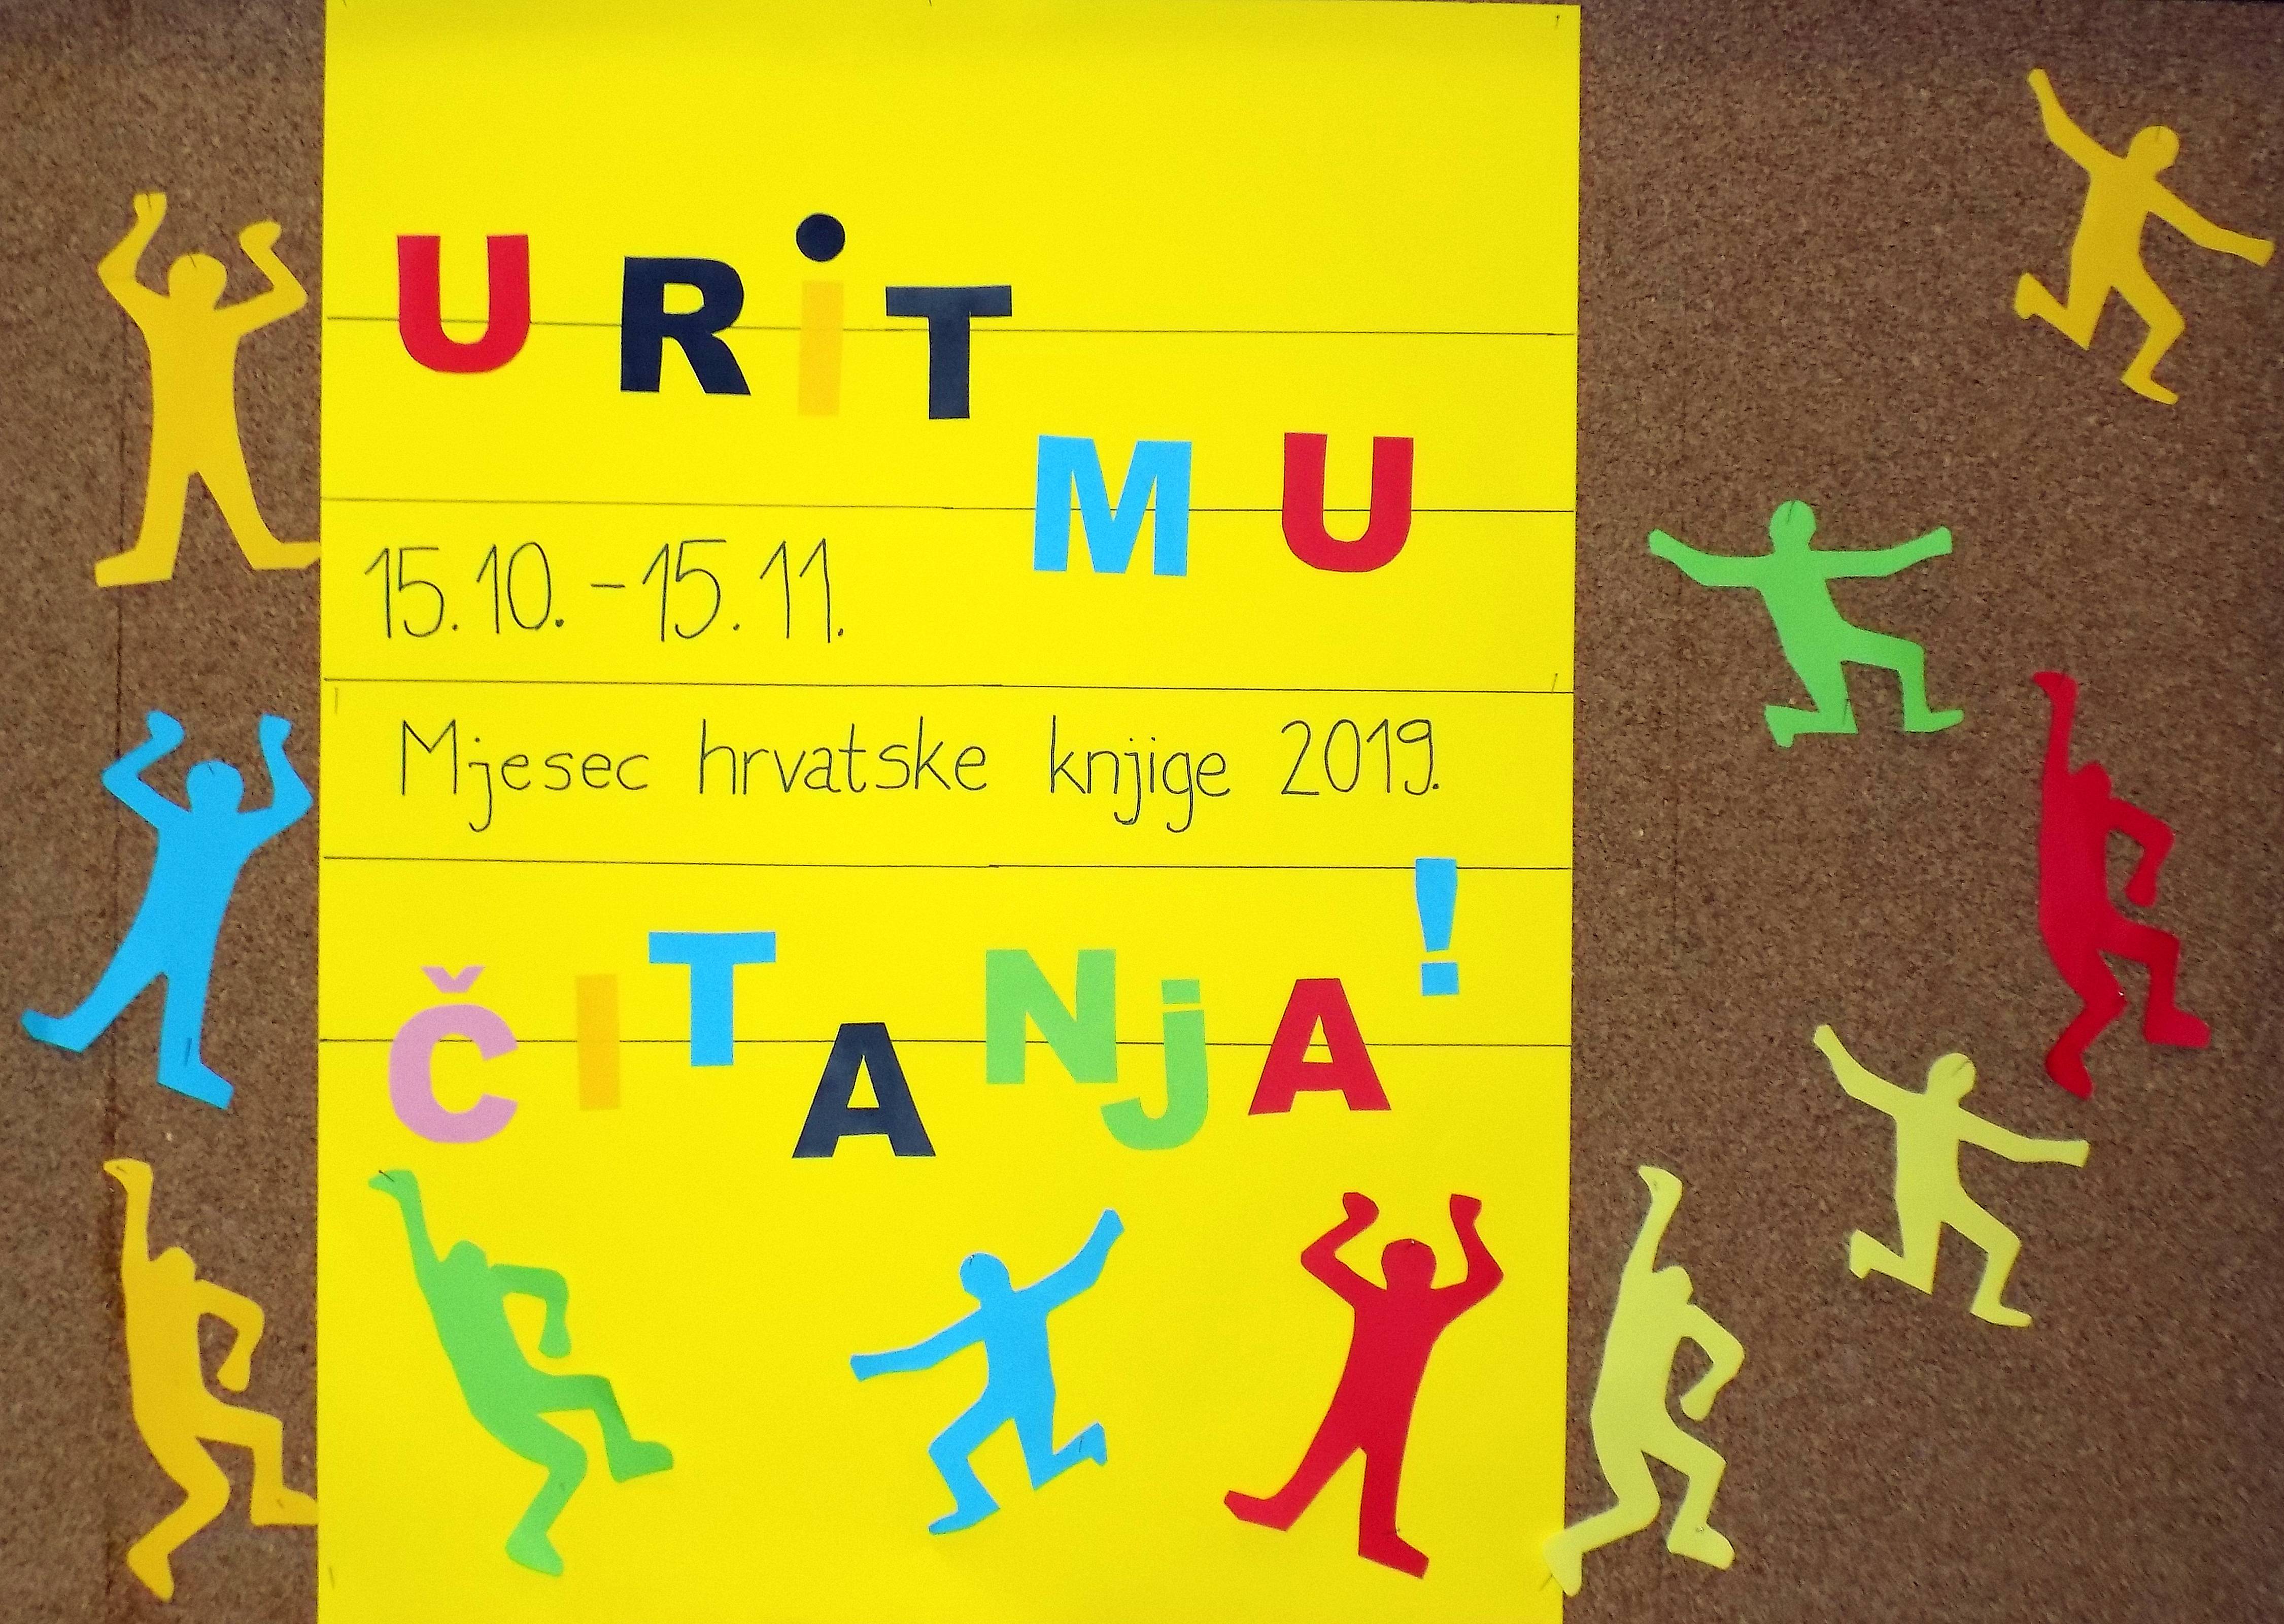 U RiT
MU
15.10. - 15.11.
Mjesec hrvatske knjige 2019.
ČITANjA!